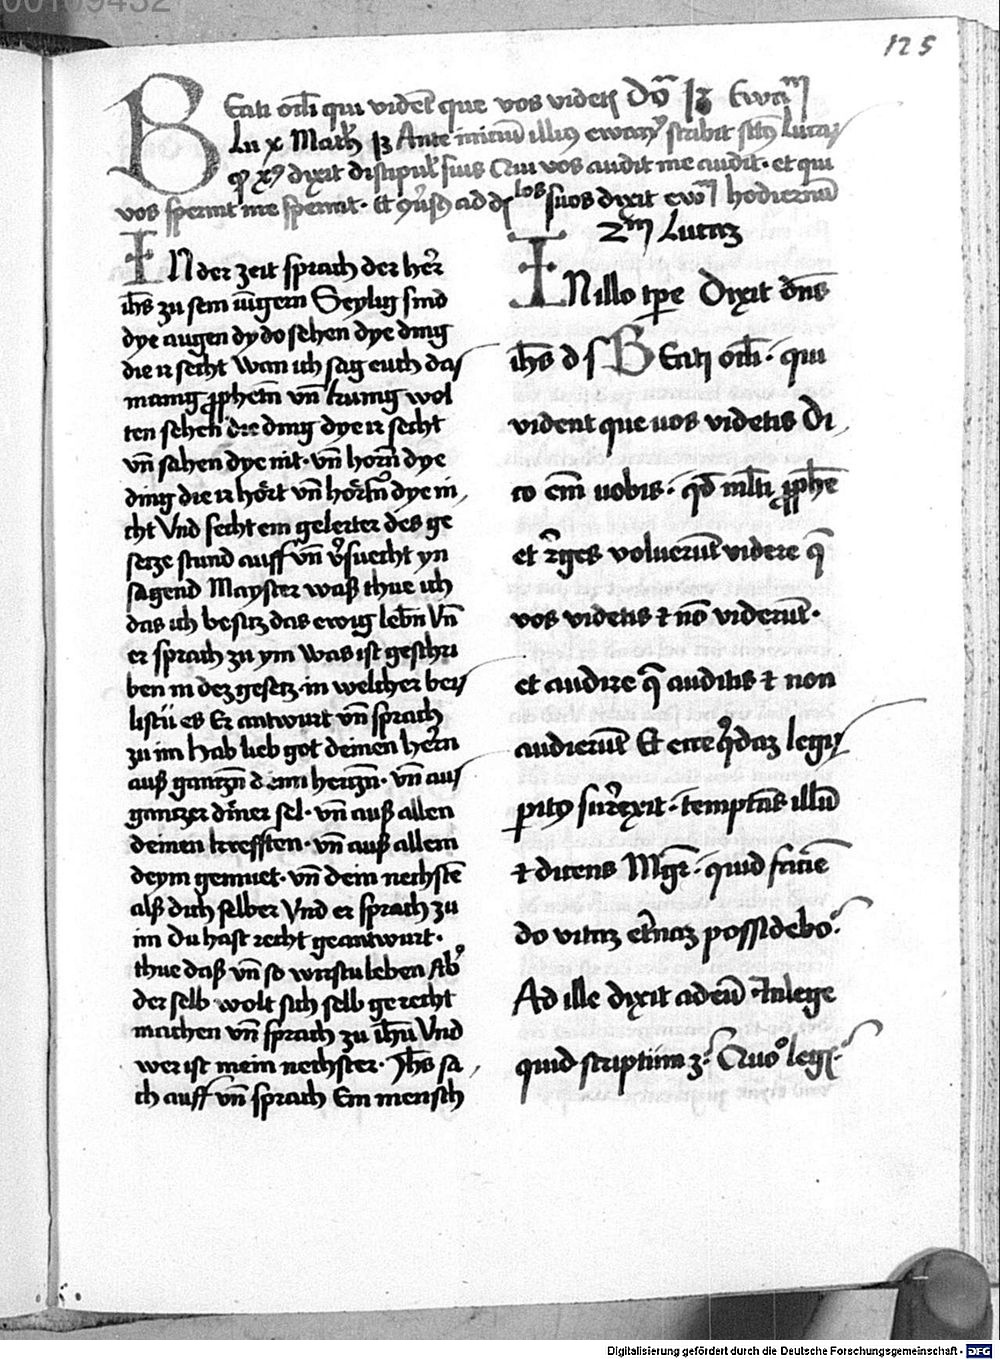 00109432
125
Beati oc̄li qui vidēt que vos videtꝭ Do᷑ 13 Ewāꝫ
Lu x Math 13 Ante iniciū illiꝰ ewanꝫ scribit sctꝰ Lucaꝫ
ꝙ xꝰ dixit discipul̄ suis Qui vos audit me audit · et qui
vos spernit me spernit · Et ad dꝭ los suos dixit ewꝫ hodiernū
2m Lucaꝫ
IN der zeit sprach der her̄
ih̄s zu sein iūgern Seylig sind
dye augen dy do sehen dye ding
die ir secht Wan ich sag euch das
manig ꝓphetn̄ vn̄ kunig wol
ten sehen die ding dye ir secht
vn̄ sahen dye nit · vn̄ horn̄ dye
ding die ir hört vn̄ hörtn̄ dye ni
cht Vnd secht ein gelerter des ge
secze stund auff vn̄ v̾suecht yn
sagend Mayster waß thue ich
das ich besitz das ewig lebn̄ Vn̄
er sprach zu ym Was ist geschri
ben in dez gesetz · in welcher beiß
listū es Er antwurt vn̄ sprach
zu im Hab lieb got deinen hern̄
auß ganczn̄ deim herczn̄ · vn̄ aus
ganczer din̄er sel · vn̄ auß allen
deinen krefften · vn̄ auß allem
deym gemuet · vn̄ dein nechstē
alß dich selber Vnd er sprach zu
im Du hast recht geantwurt ·
thue daß vn̄ so wirstu leben Ab̾
der selb wolt sich selb gerecht
machen vn̄ sprach zu ih̄m Vnd
wer ist mein nechster · Ih̄s sa
ch auff vn̄ sprach Ein mensch
IN illo tp̄e Dixit dn̄s
ih̄s d s Beati oc̄li · qui
vident que uos videtis Di
co em̄ uobis · qd̄ ml̄ti ꝓphē
et r̄ges voluerūt videre q̄
vos videtis ⁊ nō viderūt ·
et audire q̄ auditis ⁊ non
audierūt Et ecce q̾daꝫ legiß
pitꝰ surrexit · temptās illū
⁊ dicens Mgr̄ · quid faciē
do vitaꝫ et̾naꝫ possidebo ·
Ad ille dixit ad eū In lege
quid scriptum ꝫ · Quoº legꝭ ·
Digitalisierung gefördert durch die Deutsche Forschungsgemeinschaft - DFG